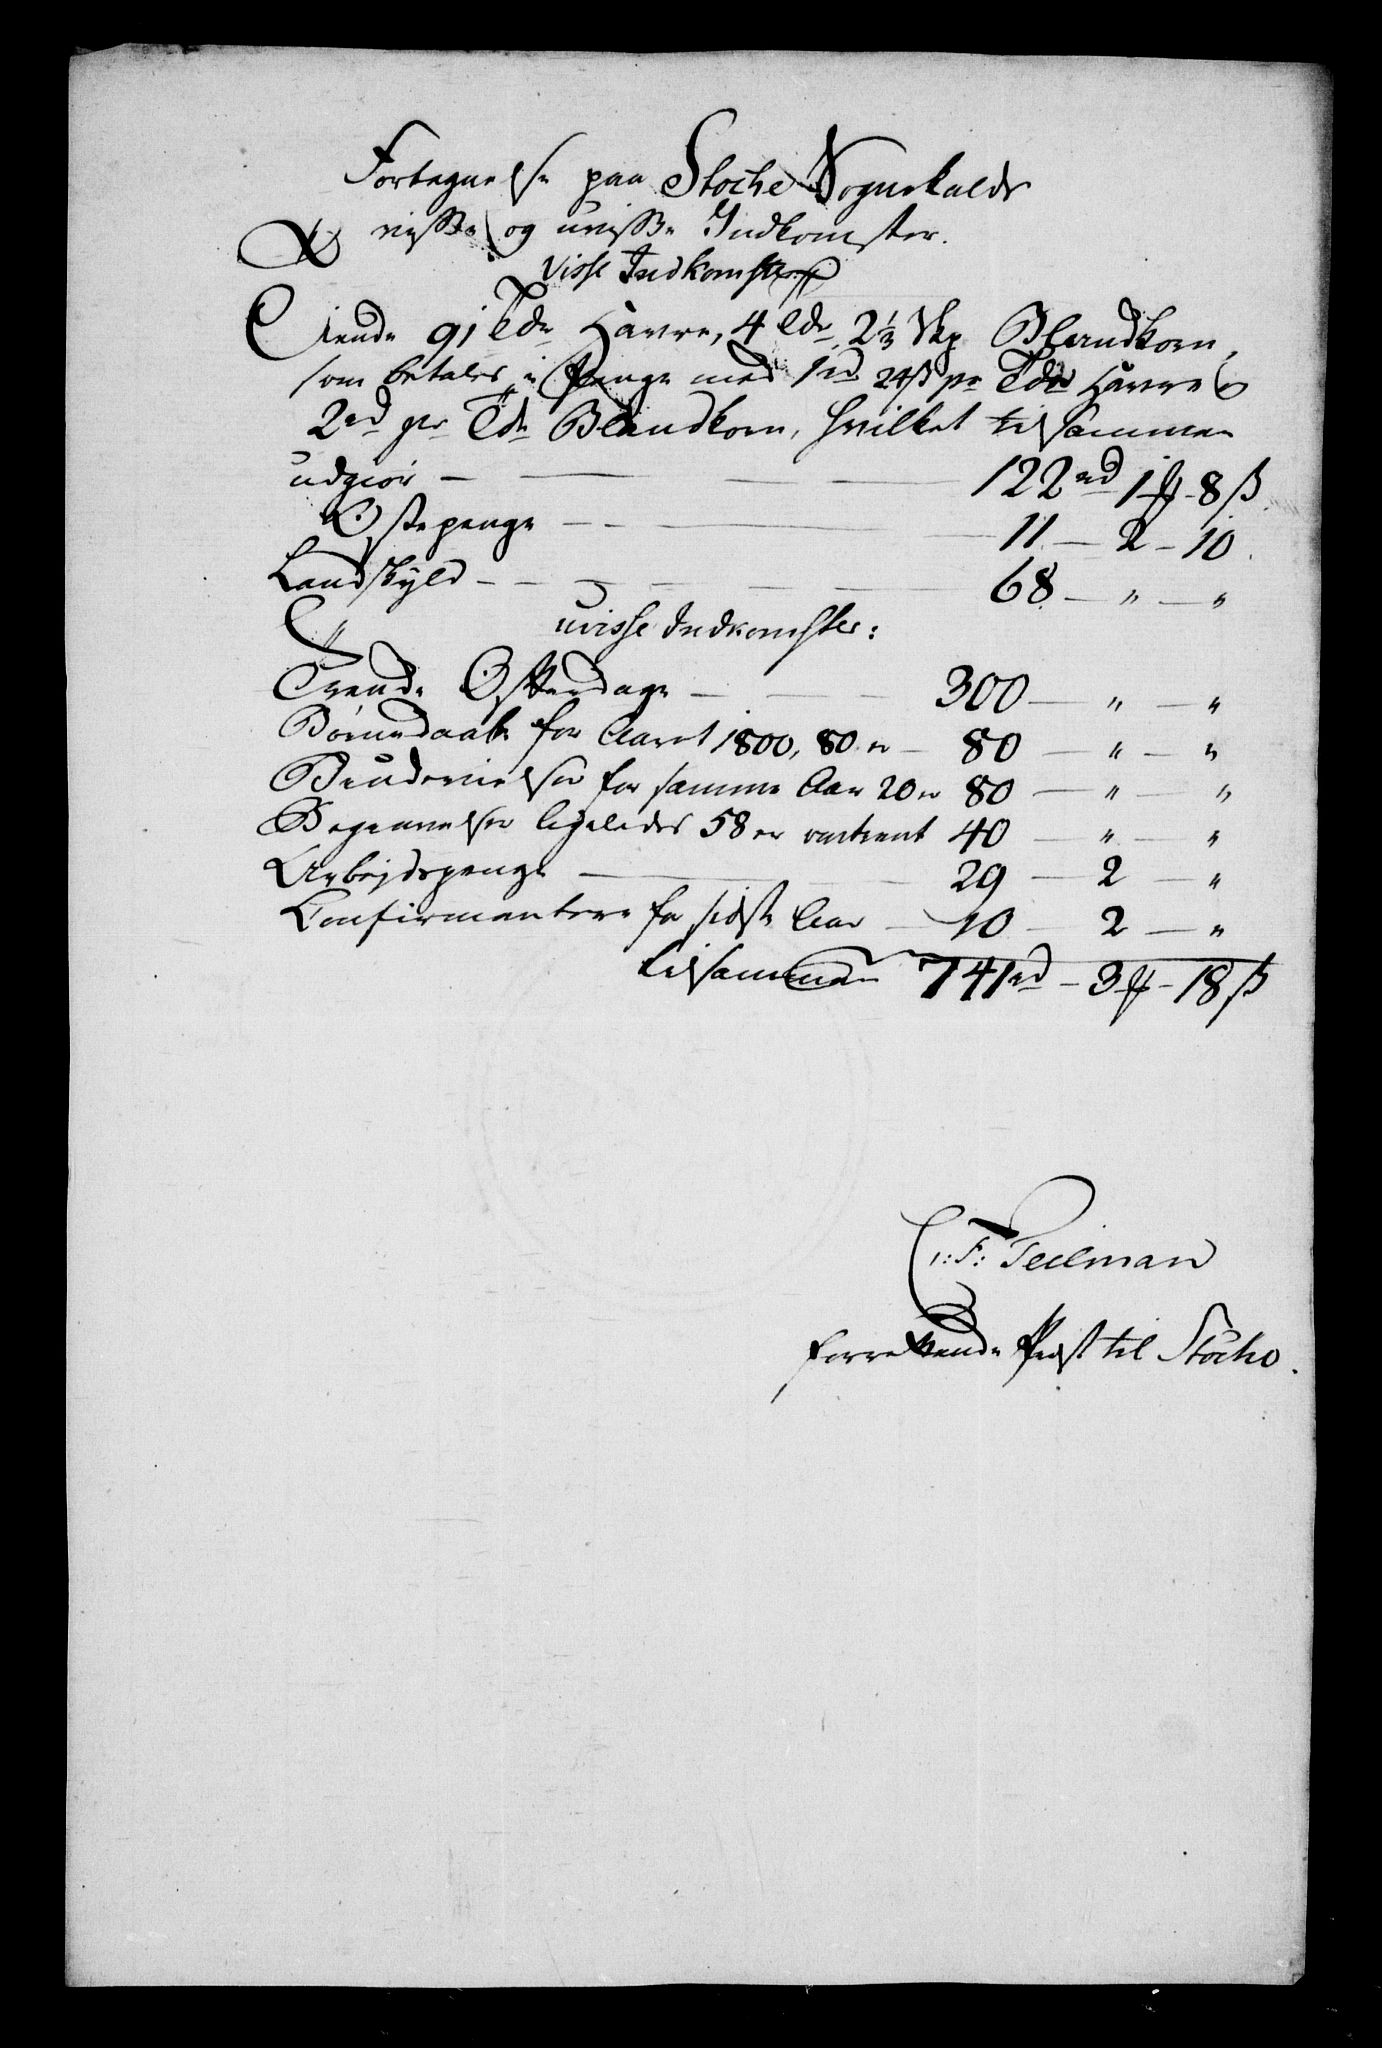 Fortegnelse paa Stocke Sognekalds
visse og uvisse Indkomster.
Visse Indkomster
Tiende 91 Tdr Havre, 4 Tdr 2 1/3 Skp Blandkorn,
som betales i Penge med 1 rd 24 ß pr Tdr Havre og
2 rd pr Tde Blandkorn, hvilket tilsammen
udgiør — 122 rd 1 ꝟ 8 ß.
Ostepenge — 11 — 2 — 10.
Landskyld — 68 — " — "
uvisse Indkomster:
Trende Offerdage — 300 — " — "
Børnedaab for Aaret 1800, 80 er — 80 — " — "
Brudevielser for samme Aar 20 er 80 — " — "
Begravelser ligeledes 58 er omtrent 40 — " — "
Arbejdspenge — 29 — 2 — "
Confirmantere for sidste Aar — 10 — 2 — "
tilsammen 741 rd — 3 ꝟ — 18 ß
C: F: Teilman
forrettende Præst til Stocke.